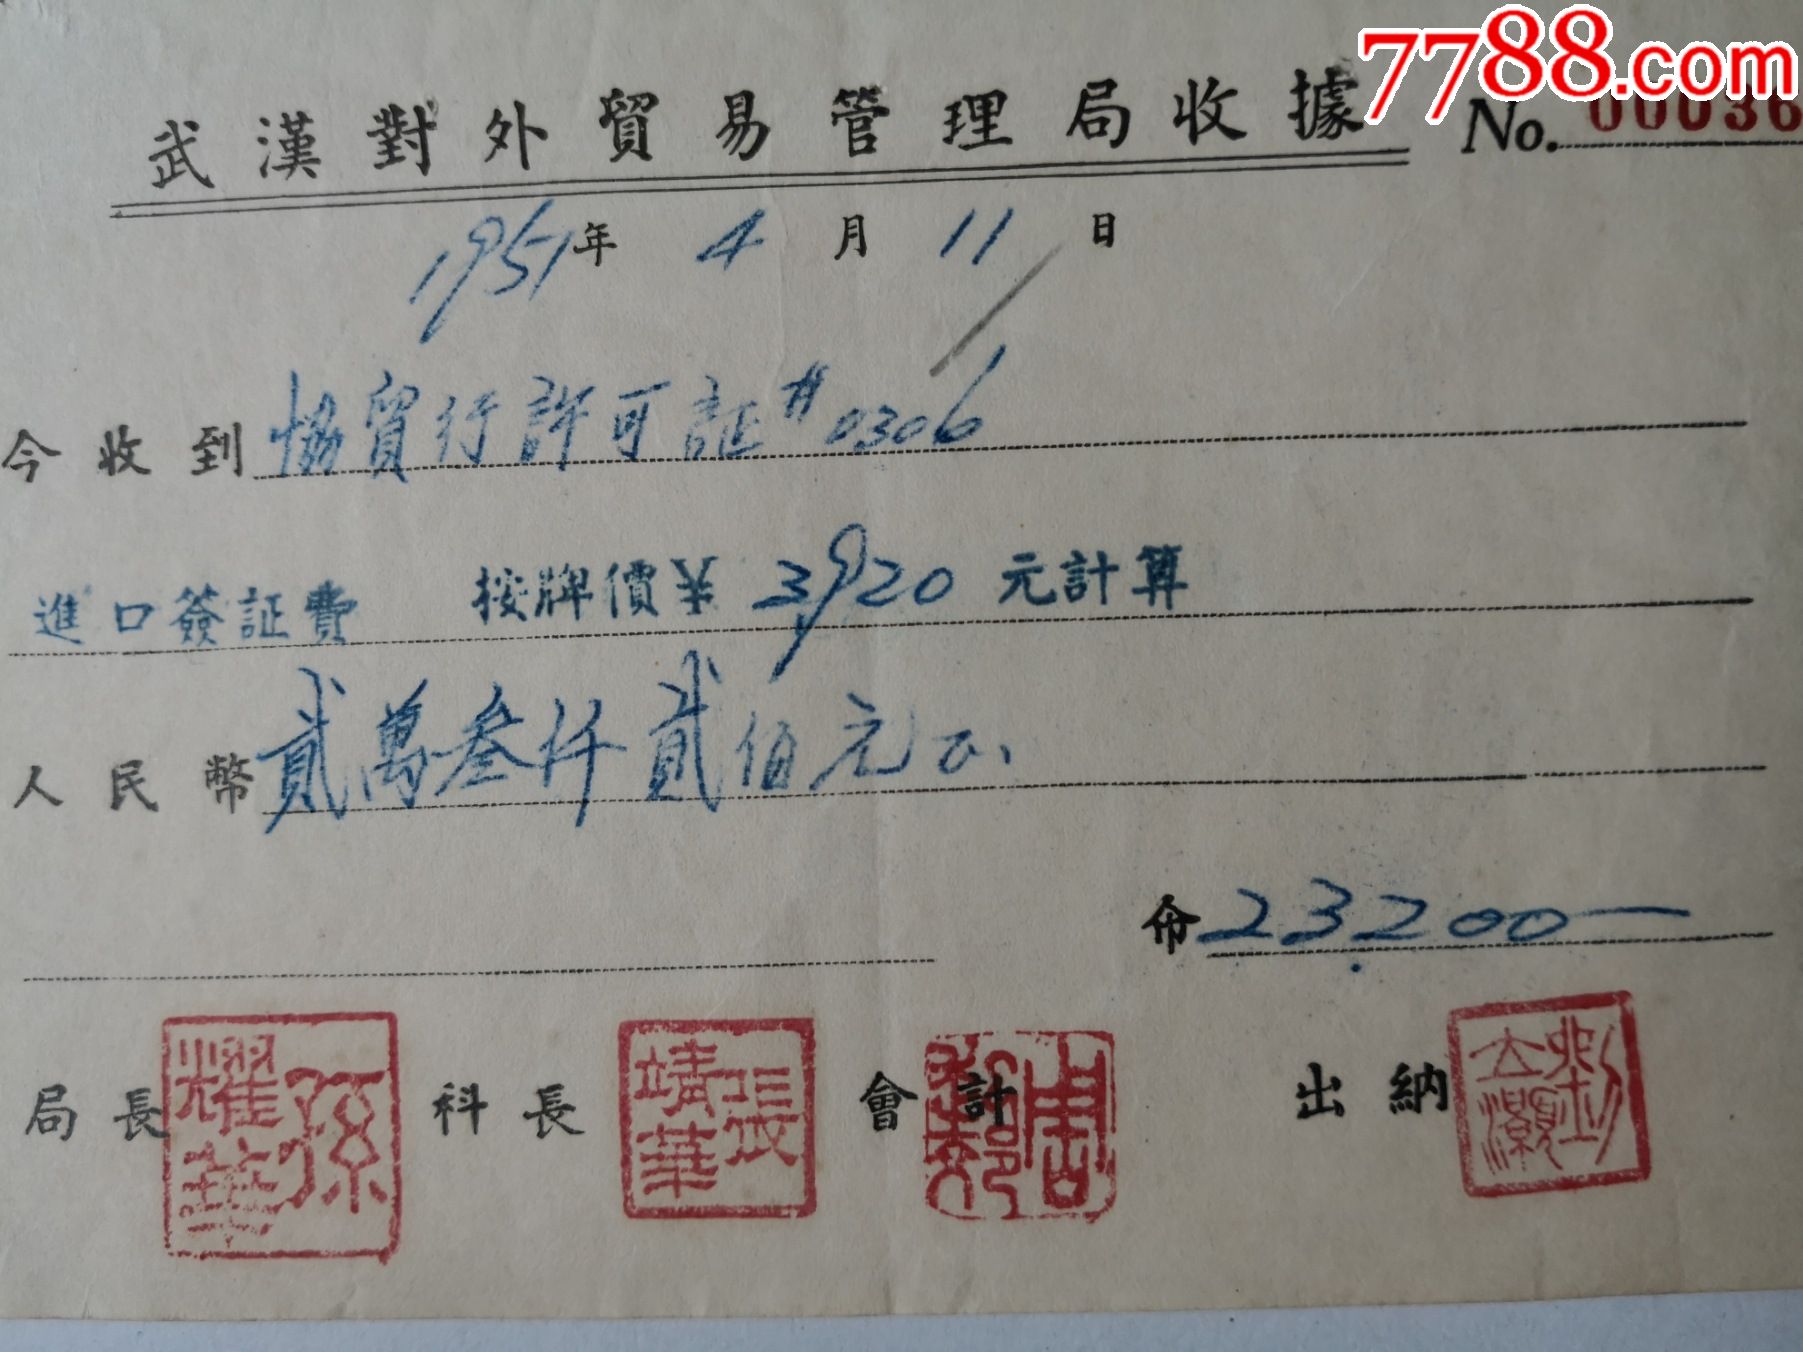 7788.com
武漢對外貿易管理局收據 No. 00036
1951年 4 月 11 日
今收到 協貿行許可証#0306
進口簽証費 按牌價¥ 3920 元計算
人民幣 貳萬叁仟貳佰元正
23200—
局長 孫耀華 科長 張靖華 會計 周 出納 劉